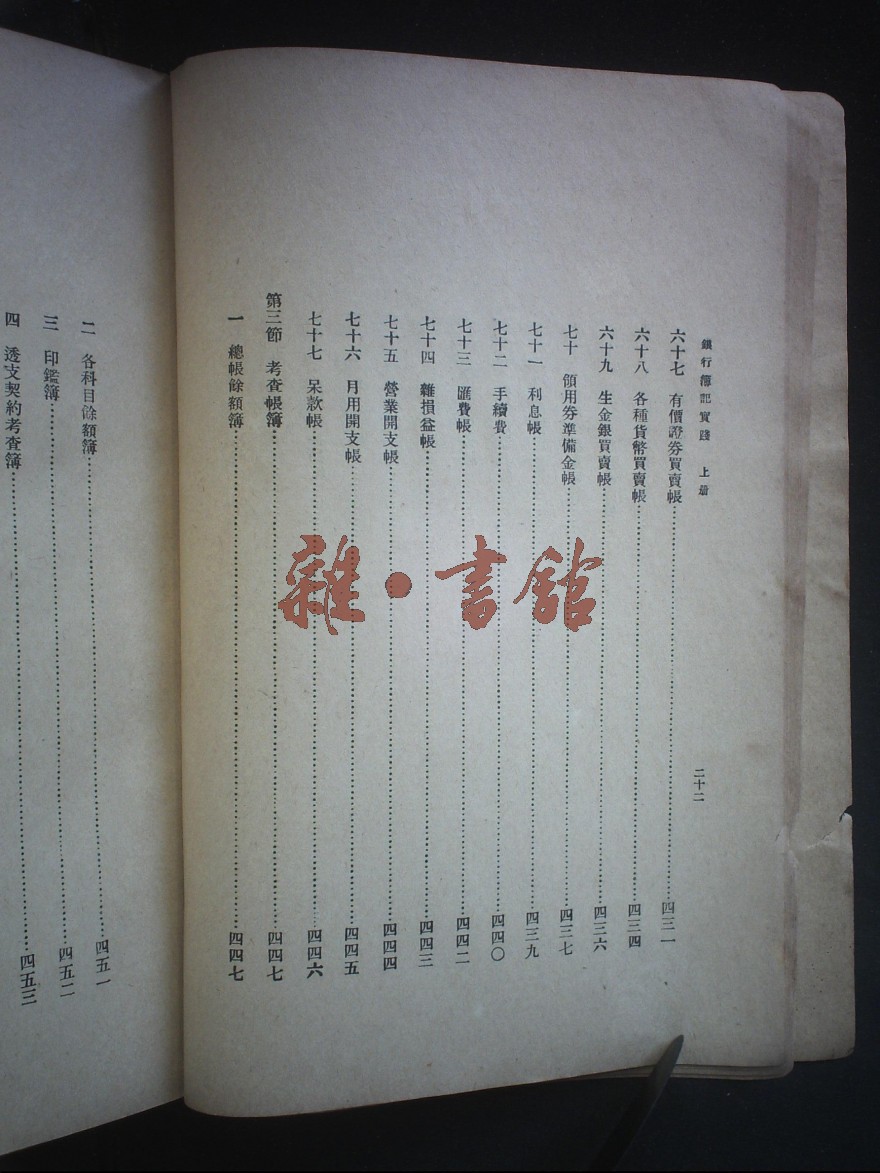 銀行簿記實踐　上册
二十二
六十七　有價證券買賣帳……四三一
六十八　各種貨幣買賣帳……四三四
六十九　生金銀買賣帳……四三六
七十　領用券準備金帳……四三七
七十一　利息帳……四三九
七十二　手續費……四四〇
七十三　匯費帳……四四二
七十四　雜損益帳……四四三
七十五　營業開支帳……四四四
七十六　月用開支帳……四四五
七十七　呆款帳……四四六
第三節　考查帳簿……四四七
一　總帳餘額簿……四四七
二　各科目餘額簿……四五一
三　印鑑簿……四五二
四　透支契約考查簿……四五三
雜·書館